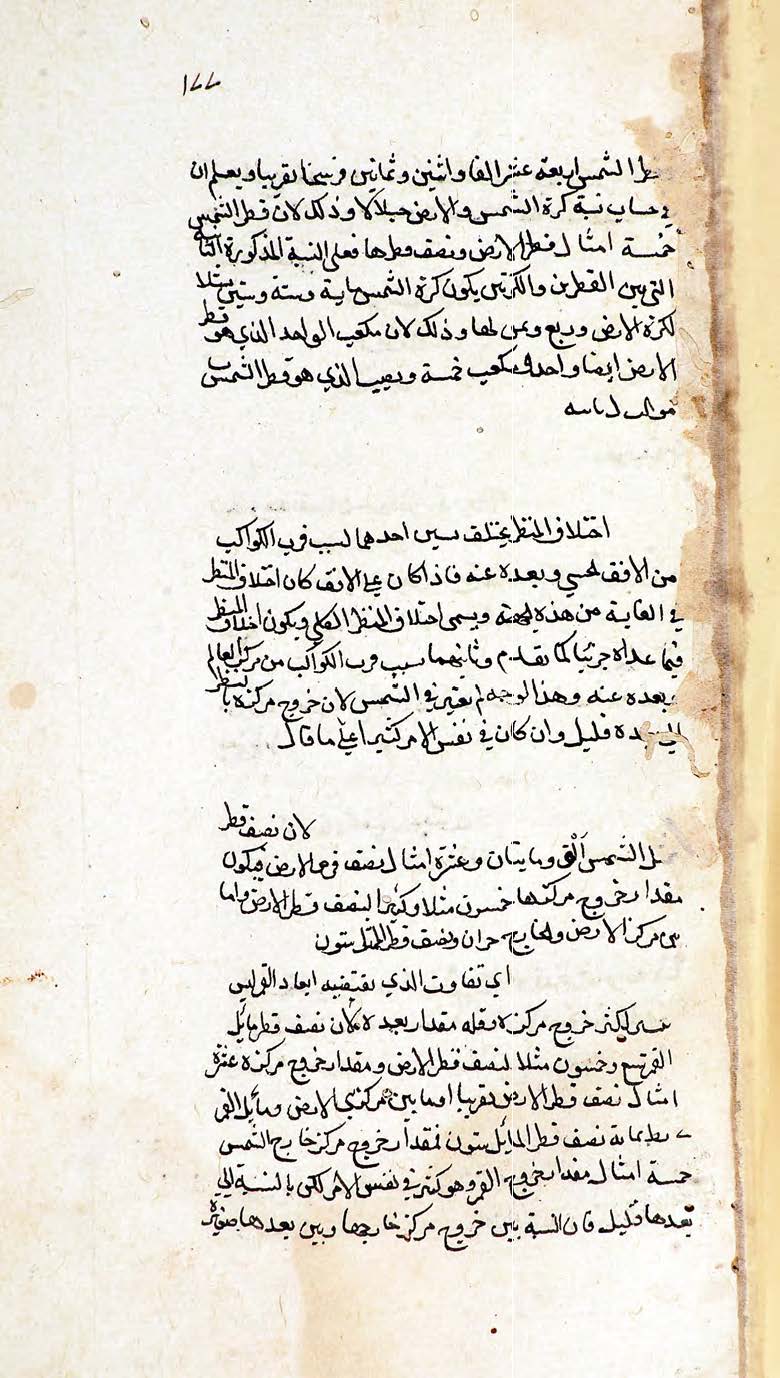 ١٧٧
الشمس اربعة عشر الفا واثنين وثمانين فرسخا تقريبا ويعلم ان
في حساب نسبة كرة الشمس والارض وذلك لان قطر الشمس
خمسة امثال قطر الارض ونصف قطرها فعلى النسبة المذكورة
التي بين القطرين والكرتين يكون كرة الشمس ماية وستة وستين مثلا
لكرة الارض وربع وثمن لها وذلك لان مكعب الواحد الذي هو قطر
الارض ايضا واحد مكعب خمسة ونصف الذي هو قطر الشمس
اختلاف المنظر يختلف احدهما لسبب قرب الكواكب
من الافق الحسي وبعده عنه فاذا كان على الافق كان اختلاف المنظر
في الغاية من هذه الجهة ويسمى اختلاف المنظر الكلي ويكون اختلاف المنظر
فيما عداه جزئيا كما تقدم وثانيهما بسبب قرب الكواكب من مركز العالم
وبعده عنه وهذا الوجه لم يعتبر في الشمس لان خروج مركزه بالنظر
قليل وان كان في نفس الامر كثيرا على ما قال
لان نصف قطر
الشمس الف ومايتان وعشرة امثال نصف الارض فيكون
مقدار خروج مركزها خمسون مثلا وكثيرا لنصف قطر الارض واما
مركز الارض والخارج جزان ونصف قطر الممثل ستون
اي تفاوت الذي يقتضيه ابعاد القمر ليس
لكثر خروج مركزه وقلة مقدار بعده لان نصف قطر مايل
القمر تسع وخمسون مثلا لنصف قطر الارض ومقدار خروج مركزه عشرة
امثال نصف قطر الارض تقريبا اذ ما بين مركزي الارض ومايل القمر
نصف قطر المايل ستون فمقدار خروج مركز خارج الشمس
خمسة امثال مقدار خروج القمر وهو كثير في نفس الامر لكن بالنسبة الى
بعدها قليل فان النسبة بين خروج مركز خارجها وبين بعدها صغيرة